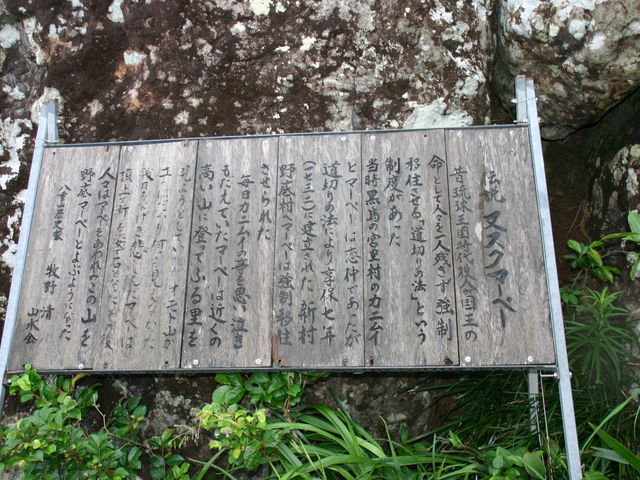 伝説 ヌスクマーペー
昔琉球王国時代役人が国王の
命として人々を一人残さず強制
移住させる「道切りの法」という
制度があった
当時黒島の宮里村のカニムイ
とマーペーは恋仲であったが
道切りの法により享保七年
(一七三二)に建立された新村
野底村へマーペーは強制移住
させられた
毎日カニムイの事を思い泣き
もたえていたマーペーは近くの
高い山に登てふる里を
見ようとした 山が
見えなかった
悲しんだマーペーは
頂上で祈る その後
人々はマーペーをあわれみこの山を
野底マーペーとよぶようになった
牧野 清
山水会